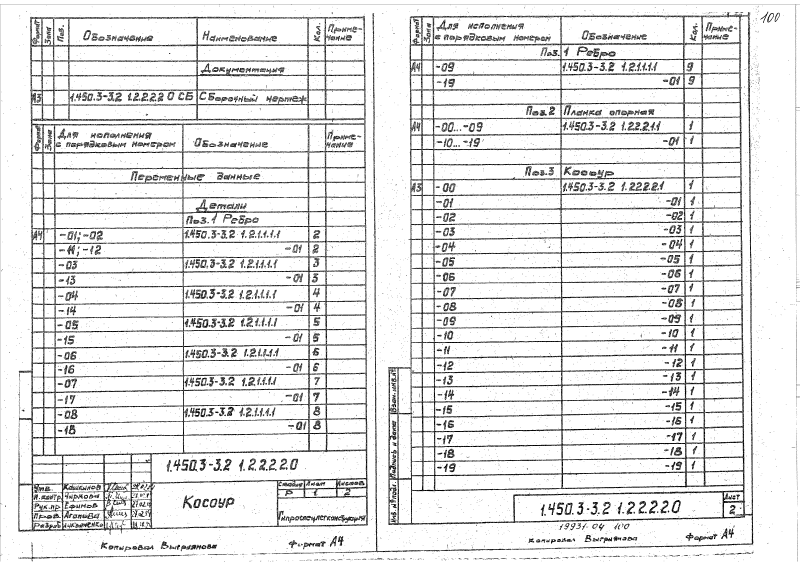 100
Формат Зона Поз. Обозначение Наименование Кол. Приме-чание
Документация
А3 1.450.3-3.2 1.2.2.2.2 0 СБ Сборочный чертеж
Формат Зона Для исполнения с порядковым номером Обозначение Кол. Приме-чание
Переменные данные
Детали
Поз.1 Ребро
А4 -01; -02 1.450.3-3.2 1.2.1.1.1.1 2
-11; -12 -01 2
-03 1.450.3-3.2 1.2.1.1.1.1 3
-13 -01 3
-04 1.450.3-3.2 1.2.1.1.1.1 4
-14 -01 4
-05 1.450.3-3.2 1.2.1.1.1.1 5
-15 -01 5
-06 1.450.3-3.2 1.2.1.1.1.1 6
-16 -01 6
-07 1.450.3-3.2 1.2.1.1.1.1 7
-17 -01 7
-08 1.450.3-3.2 1.2.1.1.1.1 8
-18 -01 8
1.450.3-3.2 1.2.2.2.2.0
Утв. Кашкинов
Н.контр. Чиркова
Рук.пр. Ефимов
Пров. Агапова
Разраб.
Косоур
Стадия Лист Листов
Р 1 2
Копировал Выгрианова Формат А4
Формат Зона Для исполнения с порядковым номером Обозначение Кол. Приме-чание
Поз.1 Ребро
А4 -09 1.450.3-3.2 1.2.1.1.1.1 9
-19 -01 9
Поз.2 Планка опорная
А4 -00...-09 1.450.3-3.2 1.2.2.2.1.1 1
-10...-19 -01 1
Поз.3 Косоур
А3 -00 1.450.3-3.2 1.2.2.2.2.1 1
-01 -01 1
-02 -02 1
-03 -03 1
-04 -04 1
-05 -05 1
-06 -06 1
-07 -07 1
-08 -08 1
-09 -09 1
-10 -10 1
-11 -11 1
-12 -12 1
-13 -13 1
-14 -14 1
-15 -15 1
-16 -16 1
-17 -17 1
-18 -18 1
-19 -19 1
Инв.№ подл. Подпись и дата Взам.инв.№
1.450.3-3.2 1.2.2.2.2.0
Лист
2
19931-04 100
Копировал Выгрианова Формат А4